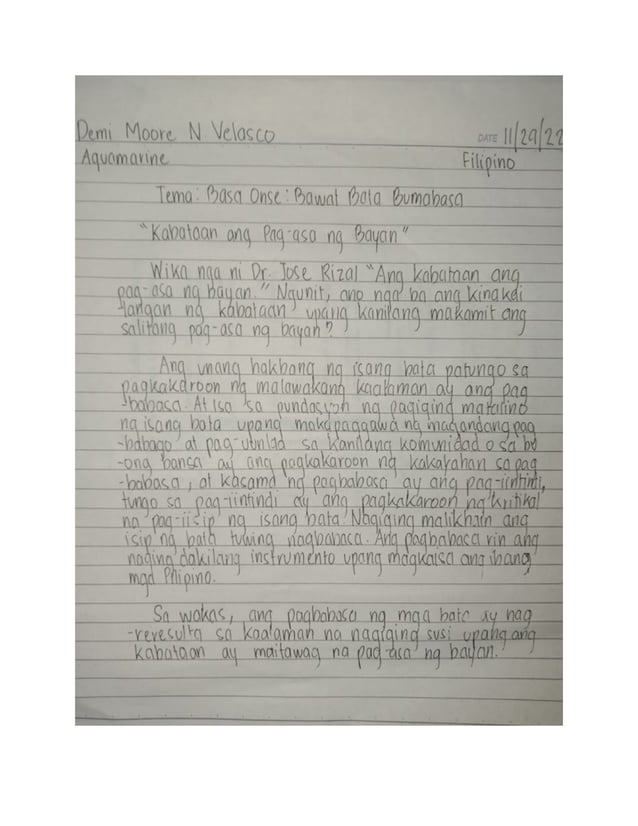 Demi Moore N Velasco
DATE 11/29/22
Aquamarine
Filipino
Tema: Basa Onse: Bawat Bata Bumabasa
"Kabataan ang Pag-asa ng Bayan"
Wika nga ni Dr. Jose Rizal "Ang kabataan ang
pag-asa ng bayan." Ngunit, ano nga ba ang kinakai
-langan ng kabataan upang kanilang makamit ang
salitang pag-asa ng bayan?
Ang unang hakbang ng isang bata patungo sa
pagkakaroon ng malawakang kaalaman ay ang pag
-babasa. At Isa sa pundasyon ng pagiging matalino
ng isang bata upang makapaggawa ng magandang pag
-babago at pag-uunlad sa kanilang komunidad o sa bu
-ong bansa ay ang pagkakaroon ng kakayahan sa pag
-babasa, at kasama ng pagbabasa ay ang pag-iintindi,
tungo sa pag-iintindi ay ang pagkakaroon ng kritikal
na pag-iisip ng isang bata. Nagiging malikhain ang
isip ng bata tuwing nagbabasa. Ang pagbabasa rin ang
naging dakilang instrumento upang magkaisa ang ibang
mga Pilipino.
Sa wakas, ang pagbabasa ng mga bata ay nag
-reresulta sa kaalaman na nagiging susi upang ang
kabataan ay maitawag na pag-asa ng bayan.